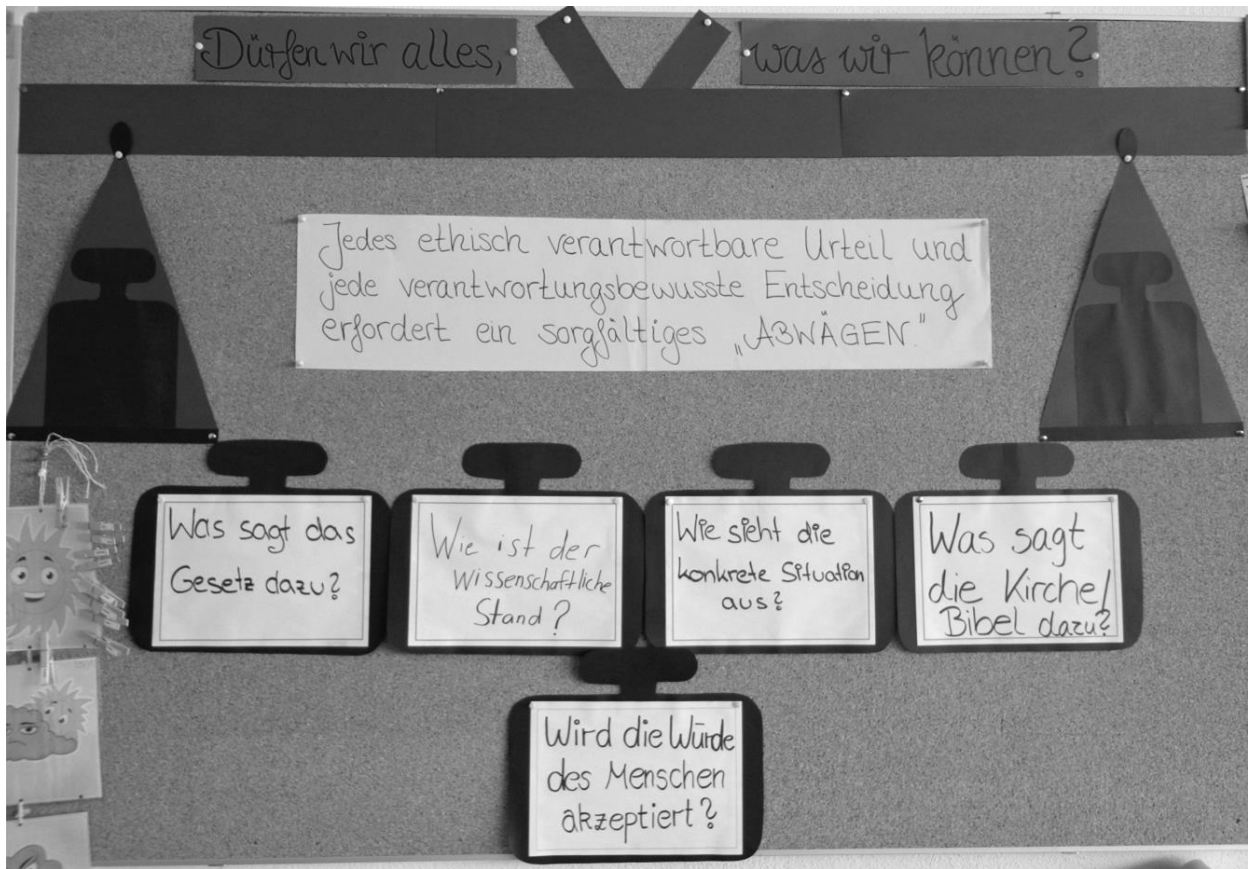 Dürfen wir alles,
was wir können?
Jedes ethisch verantwortbare Urteil und
jede verantwortungsbewusste Entscheidung
erfordert ein sorgfältiges „ABWÄGEN."
Was sagt das
Gesetz dazu?
Wie ist der
Wissenschaftliche
Stand?
Wie sieht die
konkrete Situation
aus?
Was sagt
die Kirche/
Bibel dazu?
Wird die Würde
des Menschen
akzeptiert?